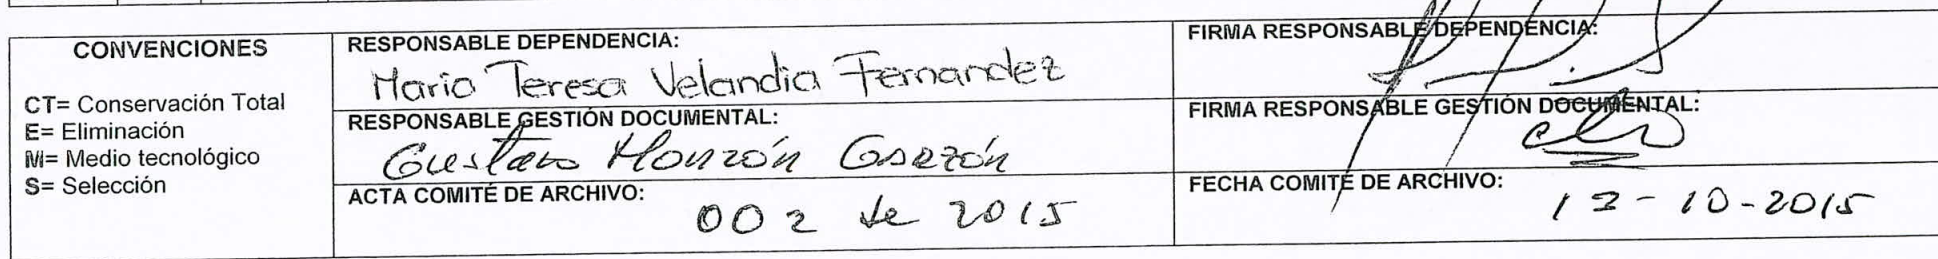 CONVENCIONES
CT= Conservación Total
E= Eliminación
M= Medio tecnológico
S= Selección
RESPONSABLE DEPENDENCIA:
Maria Teresa Velandia Fernandez
RESPONSABLE GESTIÓN DOCUMENTAL:
Gustavo Monzón Garzón
ACTA COMITÉ DE ARCHIVO:
002 de 2015
FIRMA RESPONSABLE DEPENDENCIA:
FIRMA RESPONSABLE GESTIÓN DOCUMENTAL:
FECHA COMITÉ DE ARCHIVO:
13-10-2015